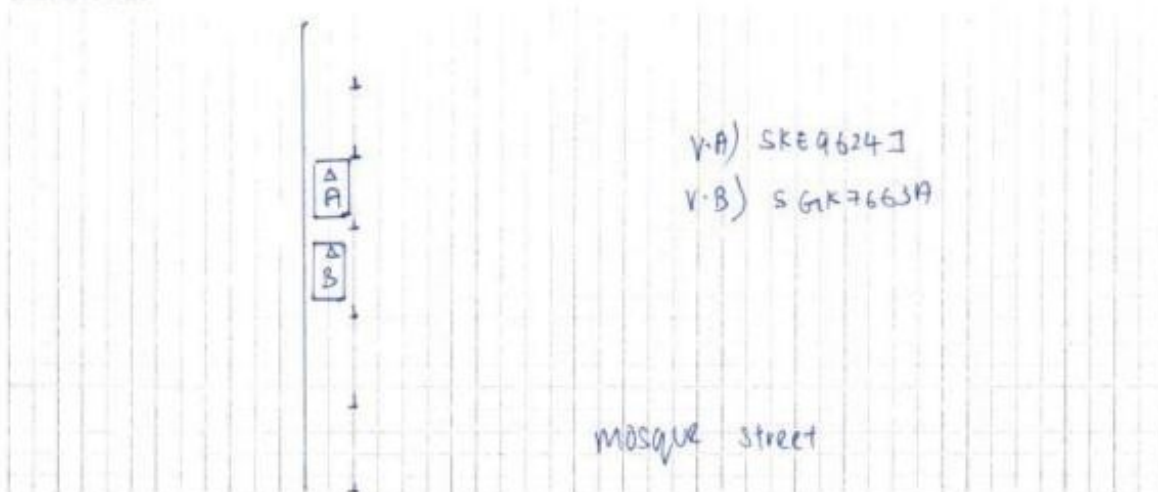 V.A) SKE9624J
V.B) SGK7663A
A
B
mosque street